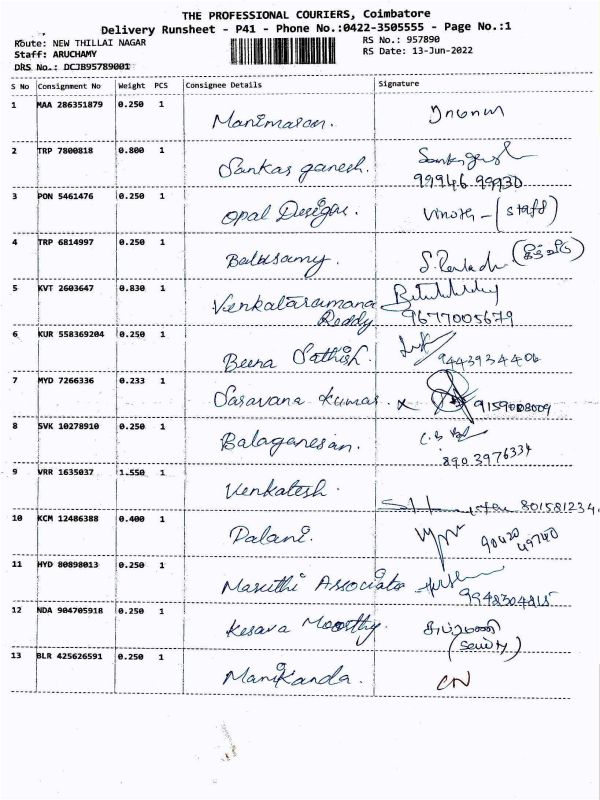 THE PROFESSIONAL COURIERS, Coimbatore
Delivery Runsheet - P41 - Phone No.:0422-3505555 - Page No.:1
Route: NEW THILLAI NAGAR RS No.: 957890
Staff: ARUCHAMY RS Date: 13-Jun-2022
DRS No.: DCJB95789001
S No Consignment No Weight PCS Consignee Details Signature
1 MAA 286351879 0.250 1 Manimaran.
2 TRP 7800818 0.800 1 Sankar ganesh.
99946 99930
3 PON 5461476 0.250 1 Opal Design. Vinoth - (staff)
4 TRP 6814997 0.250 1 Balusamy.
5 KVT 2603647 0.830 1 Venkataramana
Reddy 9677005679
6 KUR 558369204 0.250 1 Beena Sathish. 9443934406
7 MYD 7266336 0.233 1 Saravana Kumar. x 9159008009
8 SVK 10278910 0.250 1 Balaganesan.
8903976334
9 VRR 1635037 1.550 1 Venkatesh. 801581234
10 KCM 12486388 0.400 1 Palani. 90420
49740
11 HYD 80898013 0.250 1 Maruthi Associats 9948304815
12 NDA 904705918 0.250 1 Kesava Moorthy.
13 BLR 425626591 0.250 1 Manikanda. CN